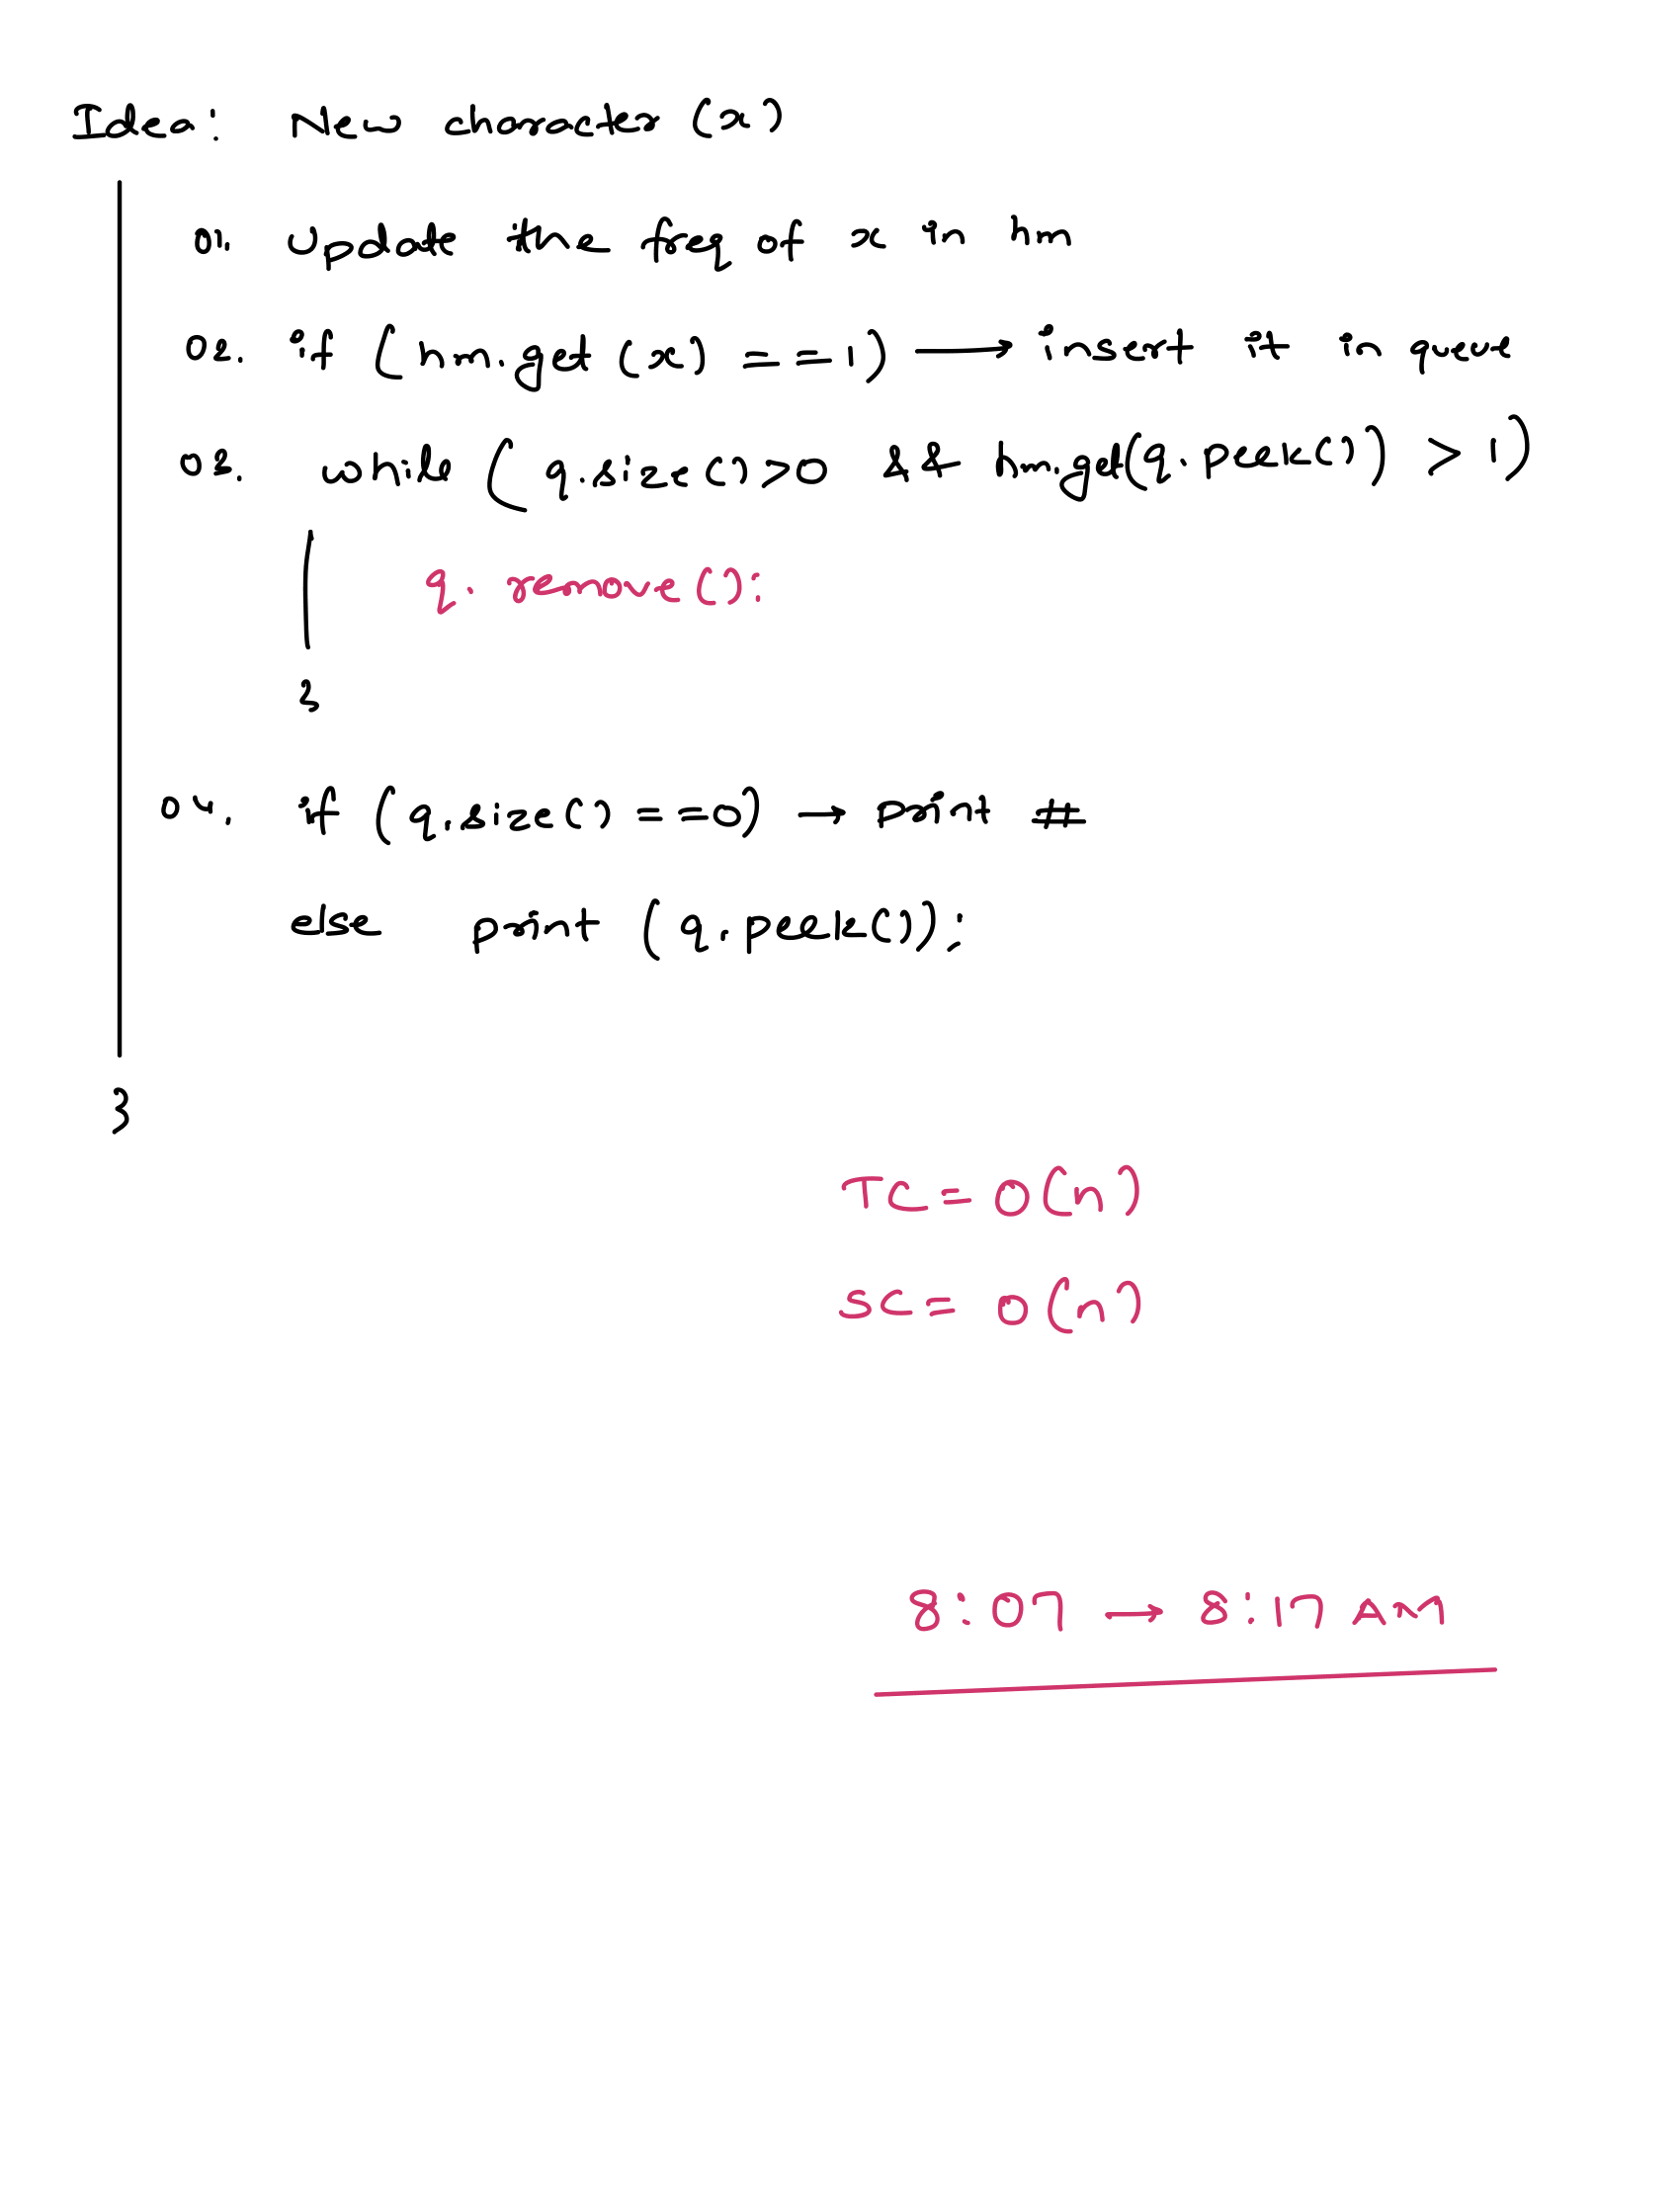 Idea: New character (x)
01. Update the freq of x in hm
02. if (hm.get(x) ==1) → insert it in queue
02. while (q.size()>0 && hm.get(q.peek()) > 1)
q. remove();
}
04. if (q.size() ==0) → print #
else print (q.peek());
}
TC = O(n)
SC = O(n)
8:07 → 8:17 AM